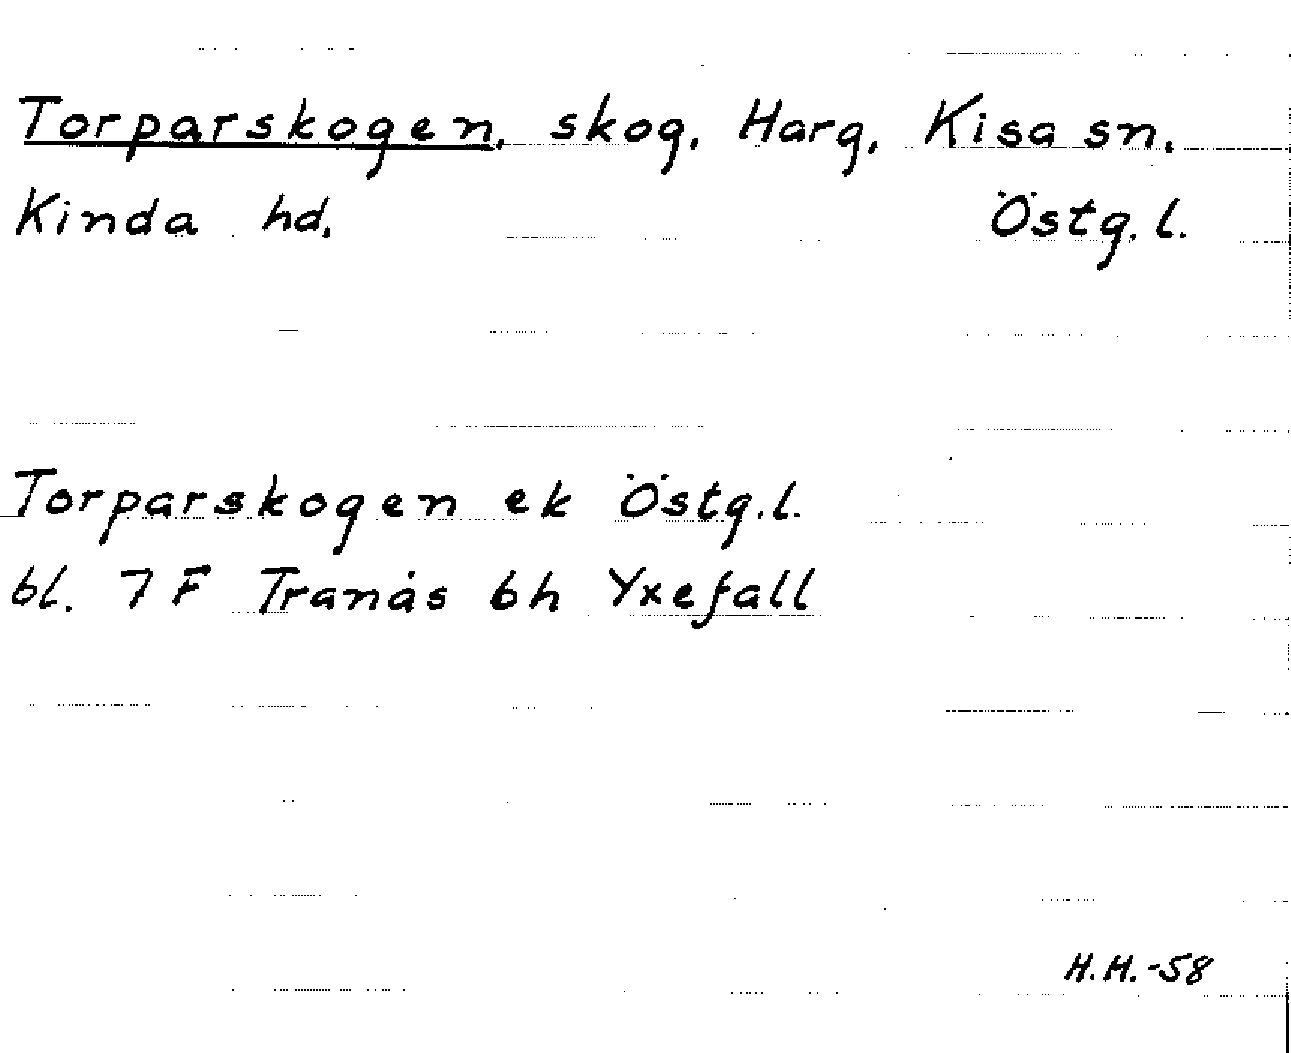 Torparskogen, skog, Harg, Kisa sn.
Kinda hd. Östg. l.
Torparskogen ek Östg. l.
bl. 7 F Tranås 6h Yxefall
H.H.-58